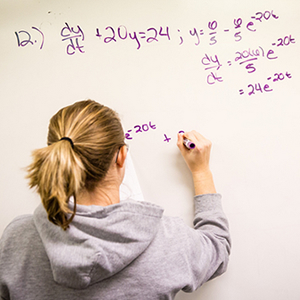 12.) dy/dt + 20y = 24 ; y = 6/5 - 6/5 e^-20t
dy/dt = 20(6)/5 e^-20t
= 24e^-20t
e^-20t +